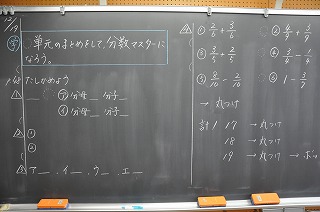 12/19
単元のまとめをして、分数マスターに
なろう。
P.68 たしかめよう
① __ ㋐ 分母__ 分子__
㋑ 分母__ 分子__
② ①
②
③ ア__、イ__、ウ__、エ__
④
① 2/6+3/6 ② 4/9+3/9
③ 3/5+2/5 ④ 3/4-1/4
⑤ 8/10-2/10 ⑥ 1-3/7
→ 丸つけ
計 1 17 → 丸つけ
18 → 丸つけ
19 → 丸つけ